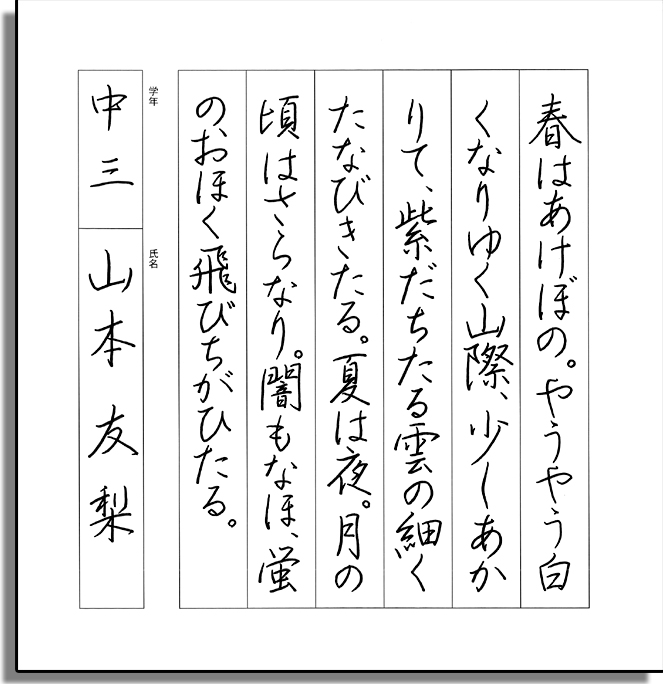 春はあけぼの。やうやう白
くなりゆく山際、少しあか
りて、紫だちたる雲の細く
たなびきたる。夏は夜。月の
頃はさらなり。闇もなほ、蛍
の、おほく飛びちがひたる。
学年
中三
氏名
山本友梨